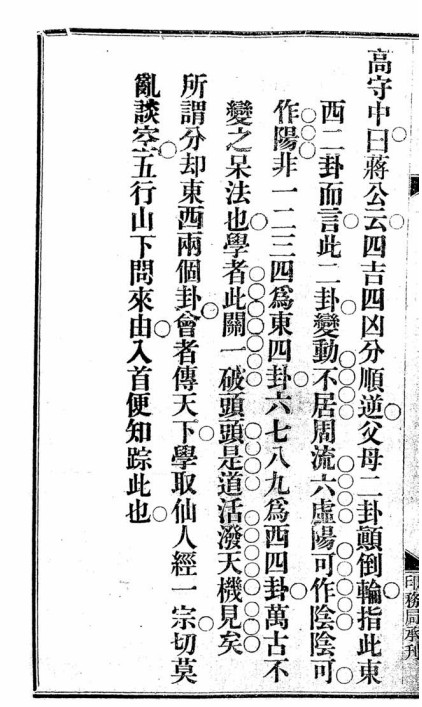 高守中曰蔣公云四吉四凶分順逆父母二卦顚倒輪指此東
西二卦而言此二卦變動不居周流六虛陽可作陰陰可
作陽非一二三四爲東四卦六七八九爲西四卦萬古不
變之呆法也學者此關一破頭頭是道活潑天機見矣
所謂分却東西兩個卦會者傳天下學取仙人經一宗切莫
亂談空五行山下問來由入首便知踪此也
印務局承刋